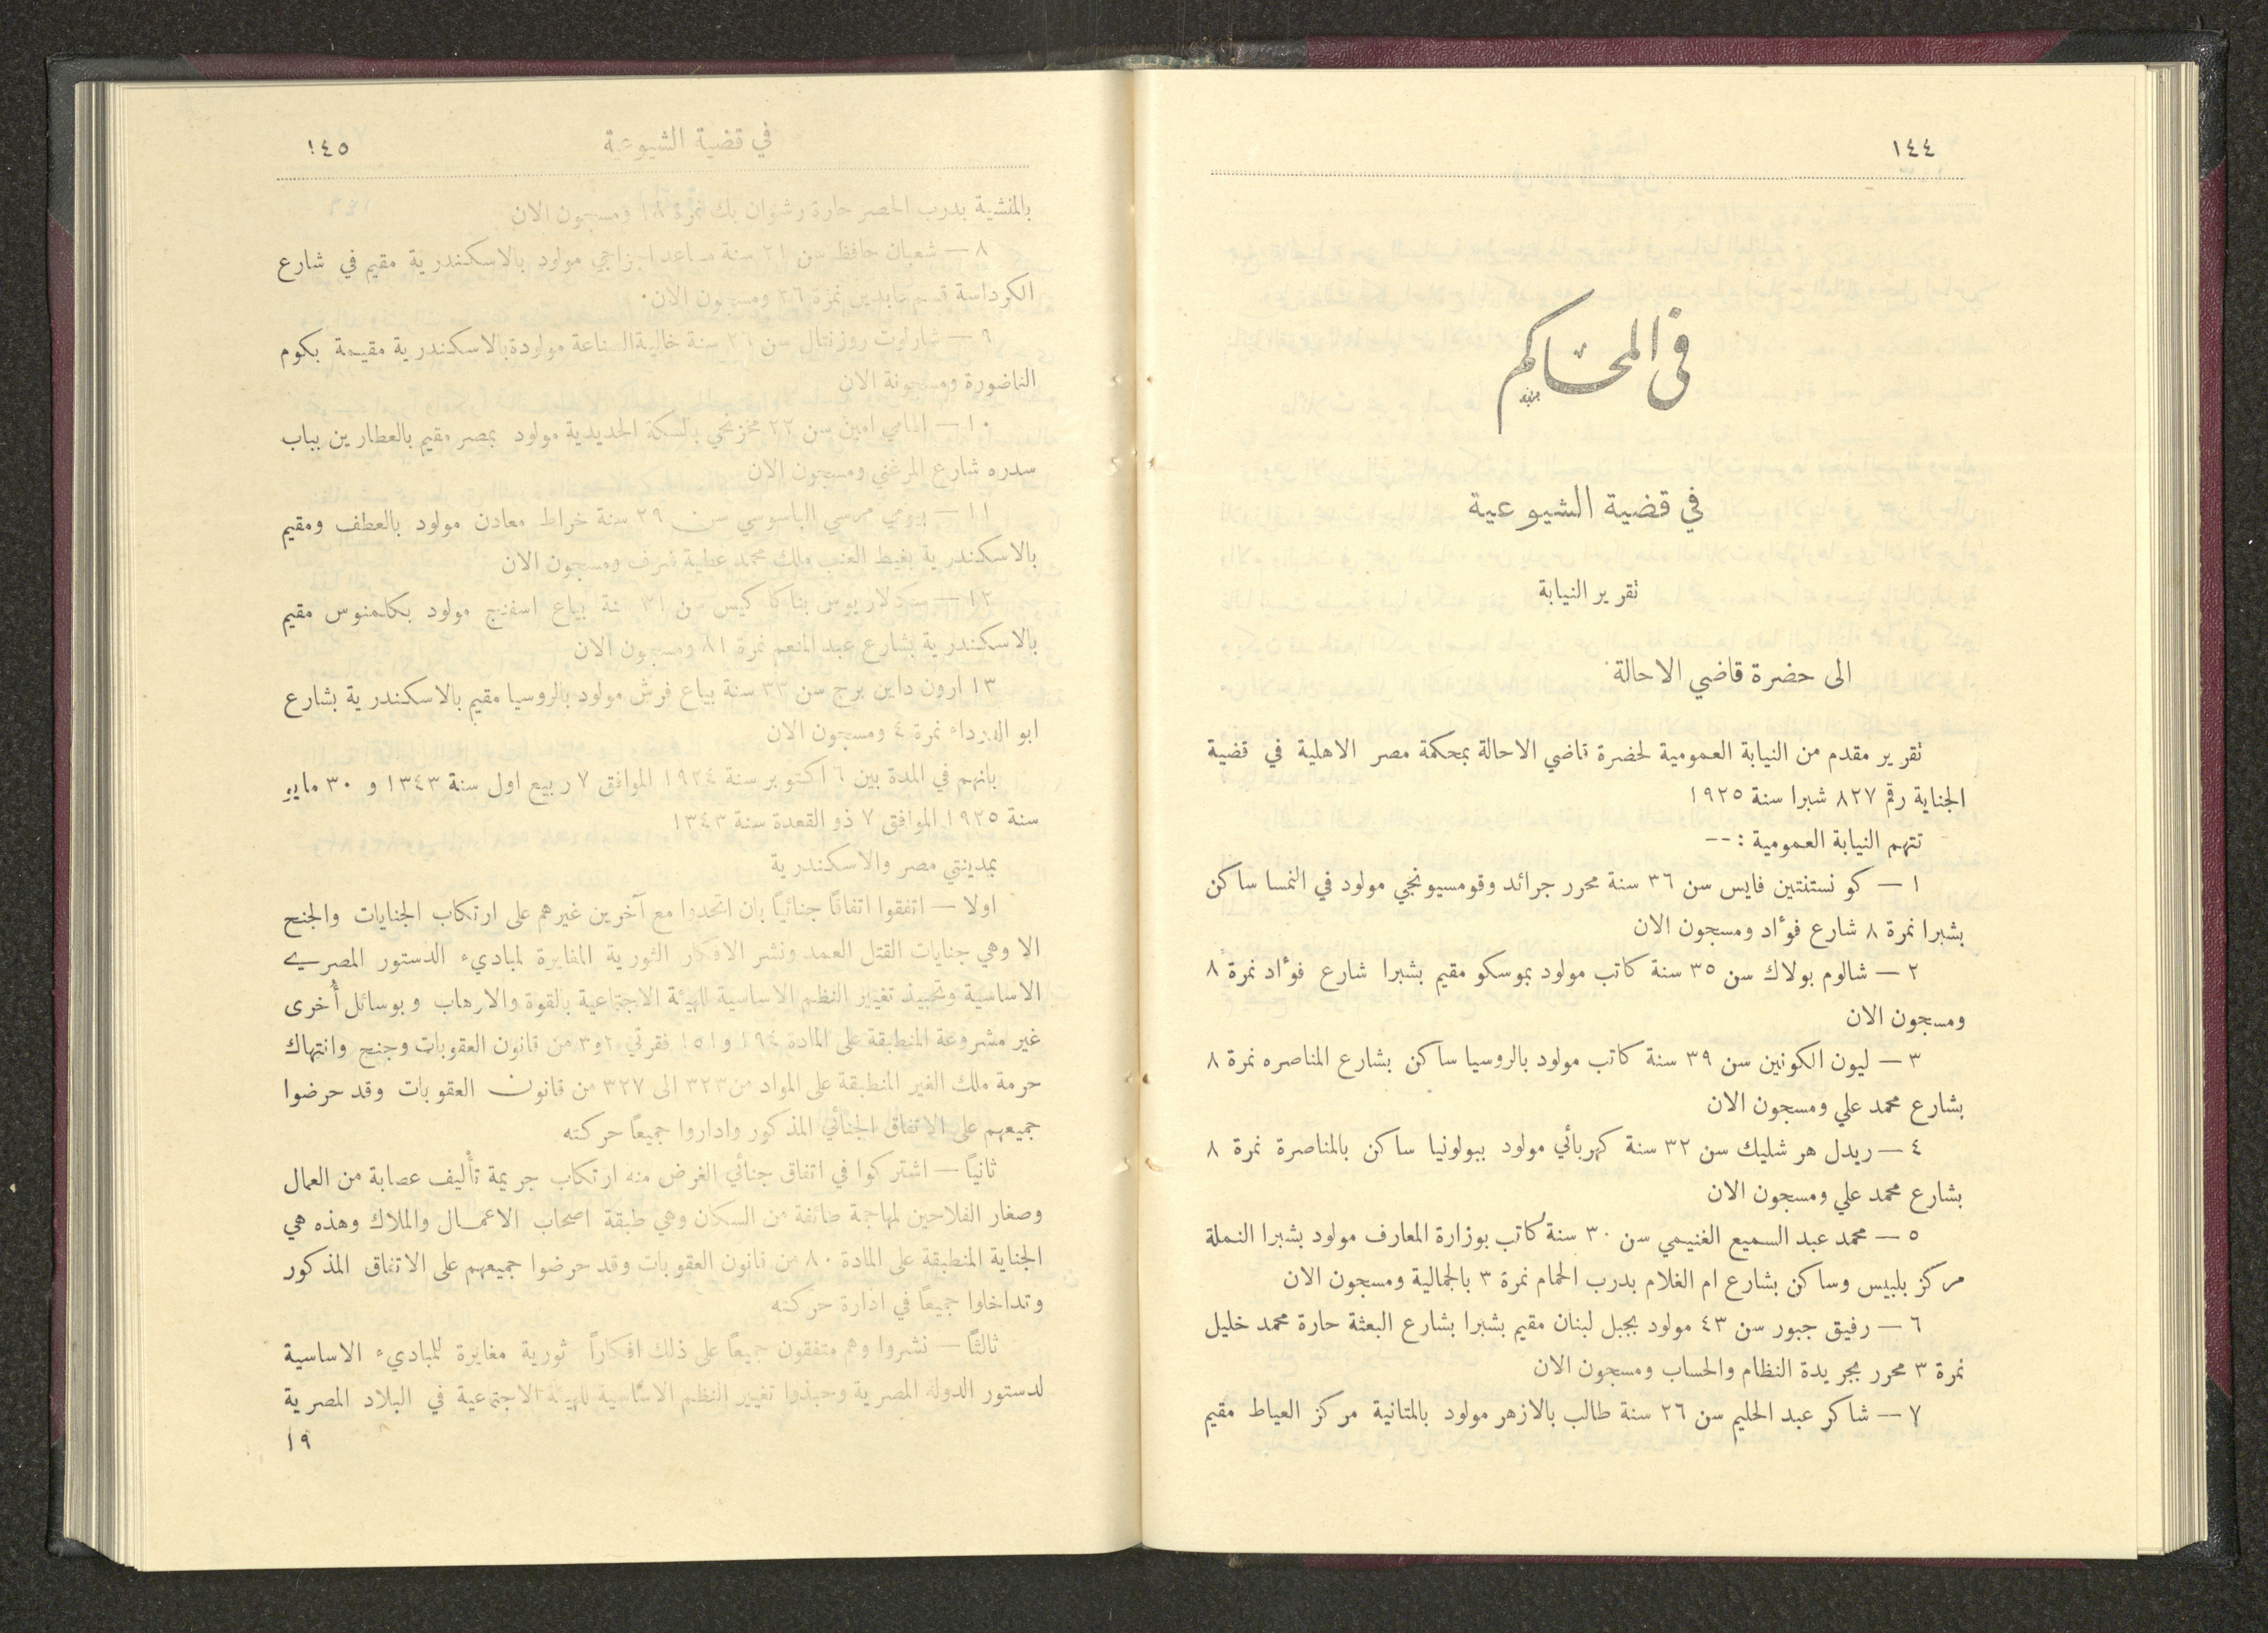 ١٤٤
في المحاكم
في قضية الشيوعية
تقرير النيابة
الى حضرة قاضي الاحالة
تقرير مقدم من النيابة العمومية لحضرة قاضي الاحالة بمحكمة مصر الاهلية في قضية
الجناية رقم ٨٢٧ شبرا سنة ١٩٢٥
تتهم النيابة العمومية : --
١ — كونستنتين فايس سن ٣٦ سنة محرر جرائد وقومسيونجي مولود في النمسا ساكن
بشبرا نمرة ٨ شارع فؤاد ومسجون الان
٢ — شالوم بولاك سن ٣٥ سنة كاتب مولود بموسكو مقيم بشبرا شارع فؤاد نمرة ٨
ومسجون الان
٣ — ليون الكونين سن ٣٩ سنة كاتب مولود بالروسيا ساكن بشارع المناصره نمرة ٨
بشارع محمد علي ومسجون الان
٤ — ريدل هر شليك سن ٣٢ سنة كهربائي مولود ببولونيا ساكن بالمناصرة نمرة ٨
بشارع محمد علي ومسجون الان
٥ — محمد عبد السميع الغنيمي سن ٣٠ سنة كاتب بوزارة المعارف مولود بشبرا النملة
مركز بلبيس وساكن بشارع ام الغلام بدرب الحمام نمرة ٣ بالجمالية ومسجون الان
٦ — رفيق جبور سن ٤٣ مولود بجبل لبنان مقيم بشبرا بشارع البعثة حارة محمد خليل
نمرة ٣ محرر بجريدة النظام والحساب ومسجون الان
٧ — شاكر عبد الحليم سن ٢٦ سنة طالب بالازهر مولود بالمتانية مركز العياط مقيم
في قضية الشيوعية ١٤٥
بالمنشية بدرب الحصر حارة رشوان بك نمرة ١٨ ومسجون الان
٨ — شعبان حافظ سن ٢١ سنة مساعد اجزاجي مولود بالاسكندرية مقيم في شارع
الكرداسة قسم عابدين نمرة ٢٦ ومسجون الان
٩ — شارلوت روزنتال سن ٢١ سنة خالية الصناعة مولودة بالاسكندرية مقيمة بكوم
الناضورة ومسجونة الان
١٠ — المامي امين سن ٢٢ مخزنجي بالسكة الحديدية مولود بمصر مقيم بالعطارين بباب
سدره شارع المرغني ومسجون الان
١١ — بيومي مرسي الباسوسي سن ٢٩ سنة خراط معادن مولود بالعطف ومقيم
بالاسكندرية بغيط العنب ملك محمد عطية شرف ومسجون الان
١٢ — سكلاريوس يناكاكيس سن ٣١ سنة بياع اسفنج مولود بكلمنوس مقيم
بالاسكندرية بشارع عبد المنعم نمرة ٨١ ومسجون الان
١٣ ارون داين برج سن ٣٣ سنة بياع فرش مولود بالروسيا مقيم بالاسكندرية بشارع
ابو الدرداء نمرة ٤ ومسجون الان
بانهم في المدة بين ٦ اكتوبر سنة ١٩٢٤ الموافق ٧ ربيع اول سنة ١٣٤٣ و ٣٠ مايو
سنة ١٩٢٥ الموافق ٧ ذو القعدة سنة ١٣٤٣
بمدينتي مصر والاسكندرية
اولا — اتفقوا اتفاقًا جنائيًا بان اتحدوا مع آخرين غيرهم على ارتكاب الجنايات والجنح
الا وهي جنايات القتل العمد ونشر الافكار الثورية المغايرة لمباديء الدستور المصري
الاساسية وتحبيذ تغيير النظم الاساسية للهيئة الاجتماعية بالقوة والارهاب وبوسائل أخرى
غير مشروعة المنطبقة على المادة ١٩٤ و١٥١ فقرتي ٢و٣ من قانون العقوبات وجنح وانتهاك
حرمة ملك الغير المنطبقة على المواد من ٣٢٣ الى ٣٢٧ من قانون العقوبات وقد حرضوا
جميعهم على الاتفاق الجنائي المذكور واداروا جميعًا حركته
ثانيًا — اشتركوا في اتفاق جنائي الغرض منه ارتكاب جريمة تأليف عصابة من العمال
وصغار الفلاحين لمهاجمة طائفة من السكان وهي طبقة اصحاب الاعمال والملاك وهذه هي
الجناية المنطبقة على المادة ٨٠ من قانون العقوبات وقد حرضوا جميعهم على الاتفاق المذكور
وتداخلوا جميعًا في ادارة حركته
ثالثًا — نشروا وهم متفقون جميعًا على ذلك افكارًا ثورية مغايرة للمباديء الاساسية
لدستور الدولة المصرية وحبذوا تغيير النظم الاساسية للهيئة الاجتماعية في البلاد المصرية
١٩